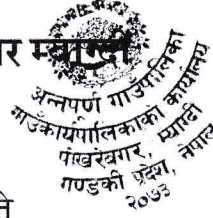 र म्याग्दी
अन्नपूर्ण गाउँपालिका
गाउँकार्यपालिकाको कार्यालय
पोखरेबगर, म्याग्दी
गण्डकी प्रदेश, नेपाल
२०७३
ते